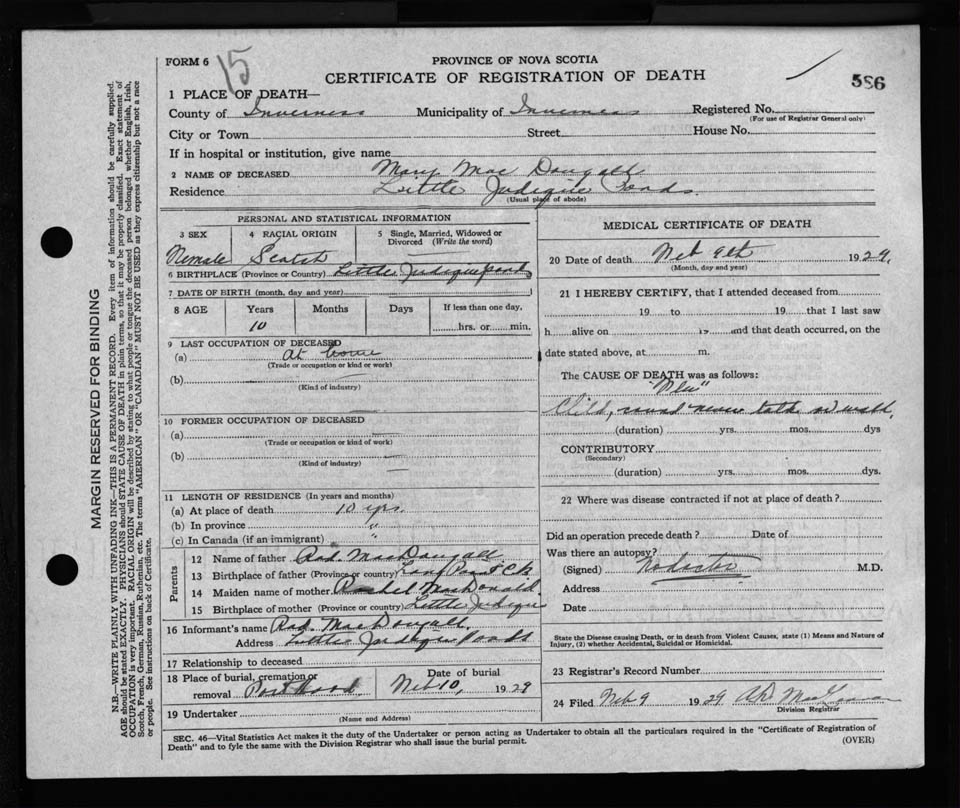 FORM 6
15
PROVINCE OF NOVA SCOTIA
CERTIFICATE OF REGISTRATION OF DEATH
586
1 PLACE OF DEATH—
County of Inverness Municipality of Inverness Registered No.
(For use of Registrar General only)
City or Town Street House No.
If in hospital or institution, give name
2 NAME OF DECEASED Mary Mac Dougall
Residence Little Judique Ponds.
(Usual place of abode)
PERSONAL AND STATISTICAL INFORMATION
3 SEX 4 RACIAL ORIGIN 5 Single, Married, Widowed or Divorced (Write the word)
Female Scotch
6 BIRTHPLACE (Province or Country) Little Judique Ponds
7 DATE OF BIRTH (month, day and year)
8 AGE Years Months Days If less than one day,
10 hrs. or min.
9 LAST OCCUPATION OF DECEASED
(a) At home
(Trade or occupation or kind or work)
(b)
(Kind of industry)
10 FORMER OCCUPATION OF DECEASED
(a)
(Trade or occupation or kind of work)
(b)
(Kind of industry)
11 LENGTH OF RESIDENCE (In years and months)
(a) At place of death 10 yrs.
(b) In province "
(c) In Canada (if an immigrant) "
Parents
12 Name of father MacDougall
13 Birthplace of father (Province or country) Long Point C B
14 Maiden name of mother Rachel MacDonald
15 Birthplace of mother (Province or country) Little Judique
16 Informant's name MacDougall
Address Little Judique Ponds
17 Relationship to deceased
18 Place of burial, cremation or removal Port Hood Date of burial Feb 10, 1929
19 Undertaker
(Name and Address)
MEDICAL CERTIFICATE OF DEATH
20 Date of death Feb 9th 1929,
(Month, day and year)
21 I HEREBY CERTIFY, that I attended deceased from
19 to 19 that I last saw
h alive on 19 and that death occurred, on the
date stated above, at m.
The CAUSE OF DEATH was as follows:
"Flu"
Child, never talk or walk.
(duration) yrs. mos. dys
CONTRIBUTORY
(Secondary)
(duration) yrs. mos. dys.
22 Where was disease contracted if not at place of death?
Did an operation precede death? Date of
Was there an autopsy?
(Signed) No doctor M.D.
Address
Date
State the Disease causing Death, or in death from Violent Causes, state (1) Means and Nature of
Injury, (2) whether Accidental, Suicidal or Homicidal.
23 Registrar's Record Number
24 Filed Feb 9 1929
Division Registrar
SEC. 46—Vital Statistics Act makes it the duty of the Undertaker or person acting as Undertaker to obtain all the particulars required in the "Certificate of Registration of
Death" and to fyle the same with the Division Registrar who shall issue the burial permit.
(OVER)
MARGIN RESERVED FOR BINDING
N.B.—WRITE PLAINLY WITH UNFADING INK—THIS IS A PERMANENT RECORD. Every item of information should be carefully supplied.
AGE should be stated EXACTLY. PHYSICIANS should STATE CAUSE OF DEATH in plain terms, so that it may be properly classified. Exact statement of
OCCUPATION is very important. RACIAL ORIGIN will be described by stating to what people or tongue the deceased person belonged whether English, Irish,
Scotch, French, German, Russian, Ruthenian, etc. The terms "AMERICAN" OR "CANADIAN" MUST NOT BE USED as they express citizenship but not a race
or people. See instructions on back of Certificate.